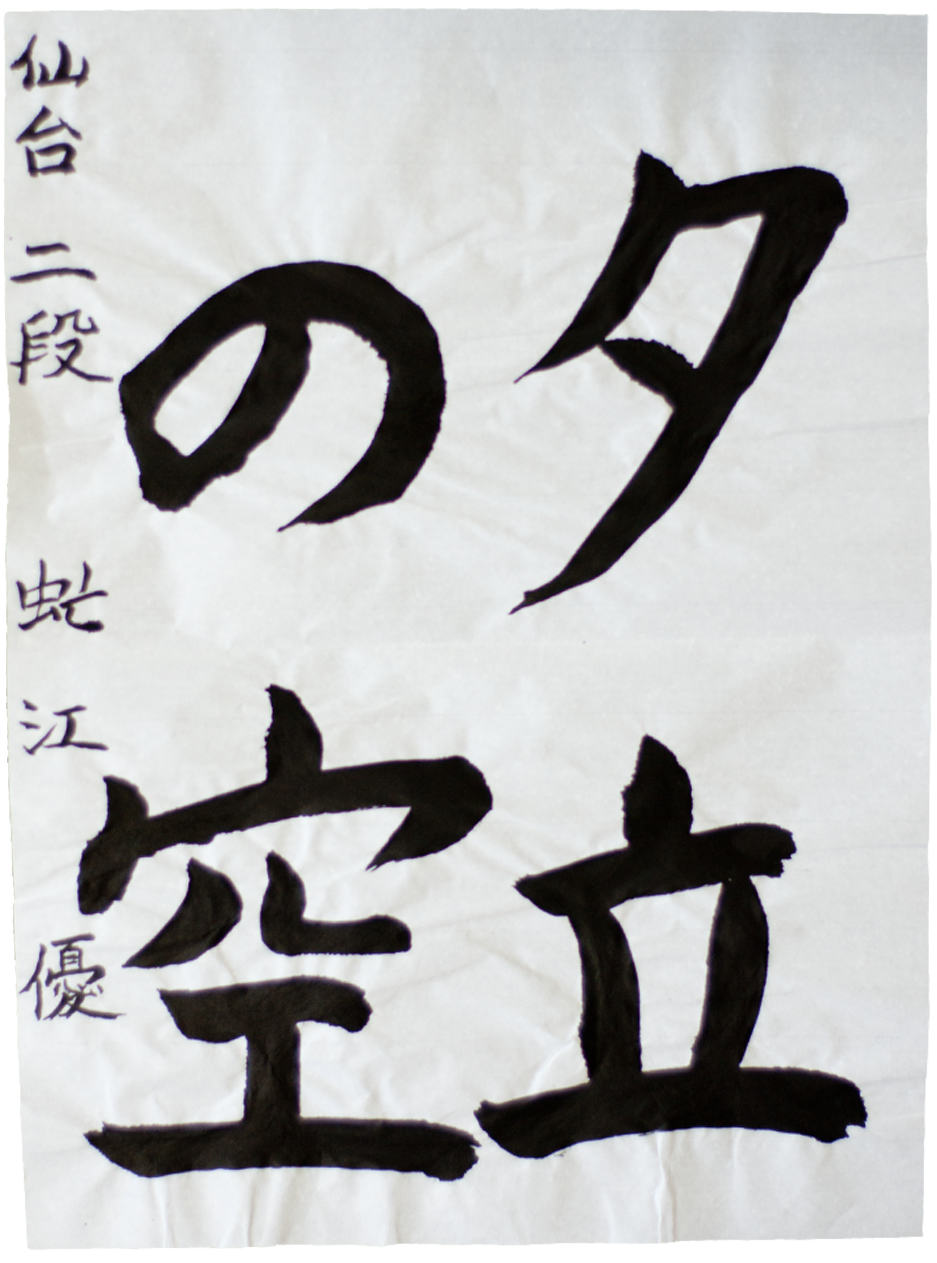 夕立
の空
仙台 二段 虻江 優